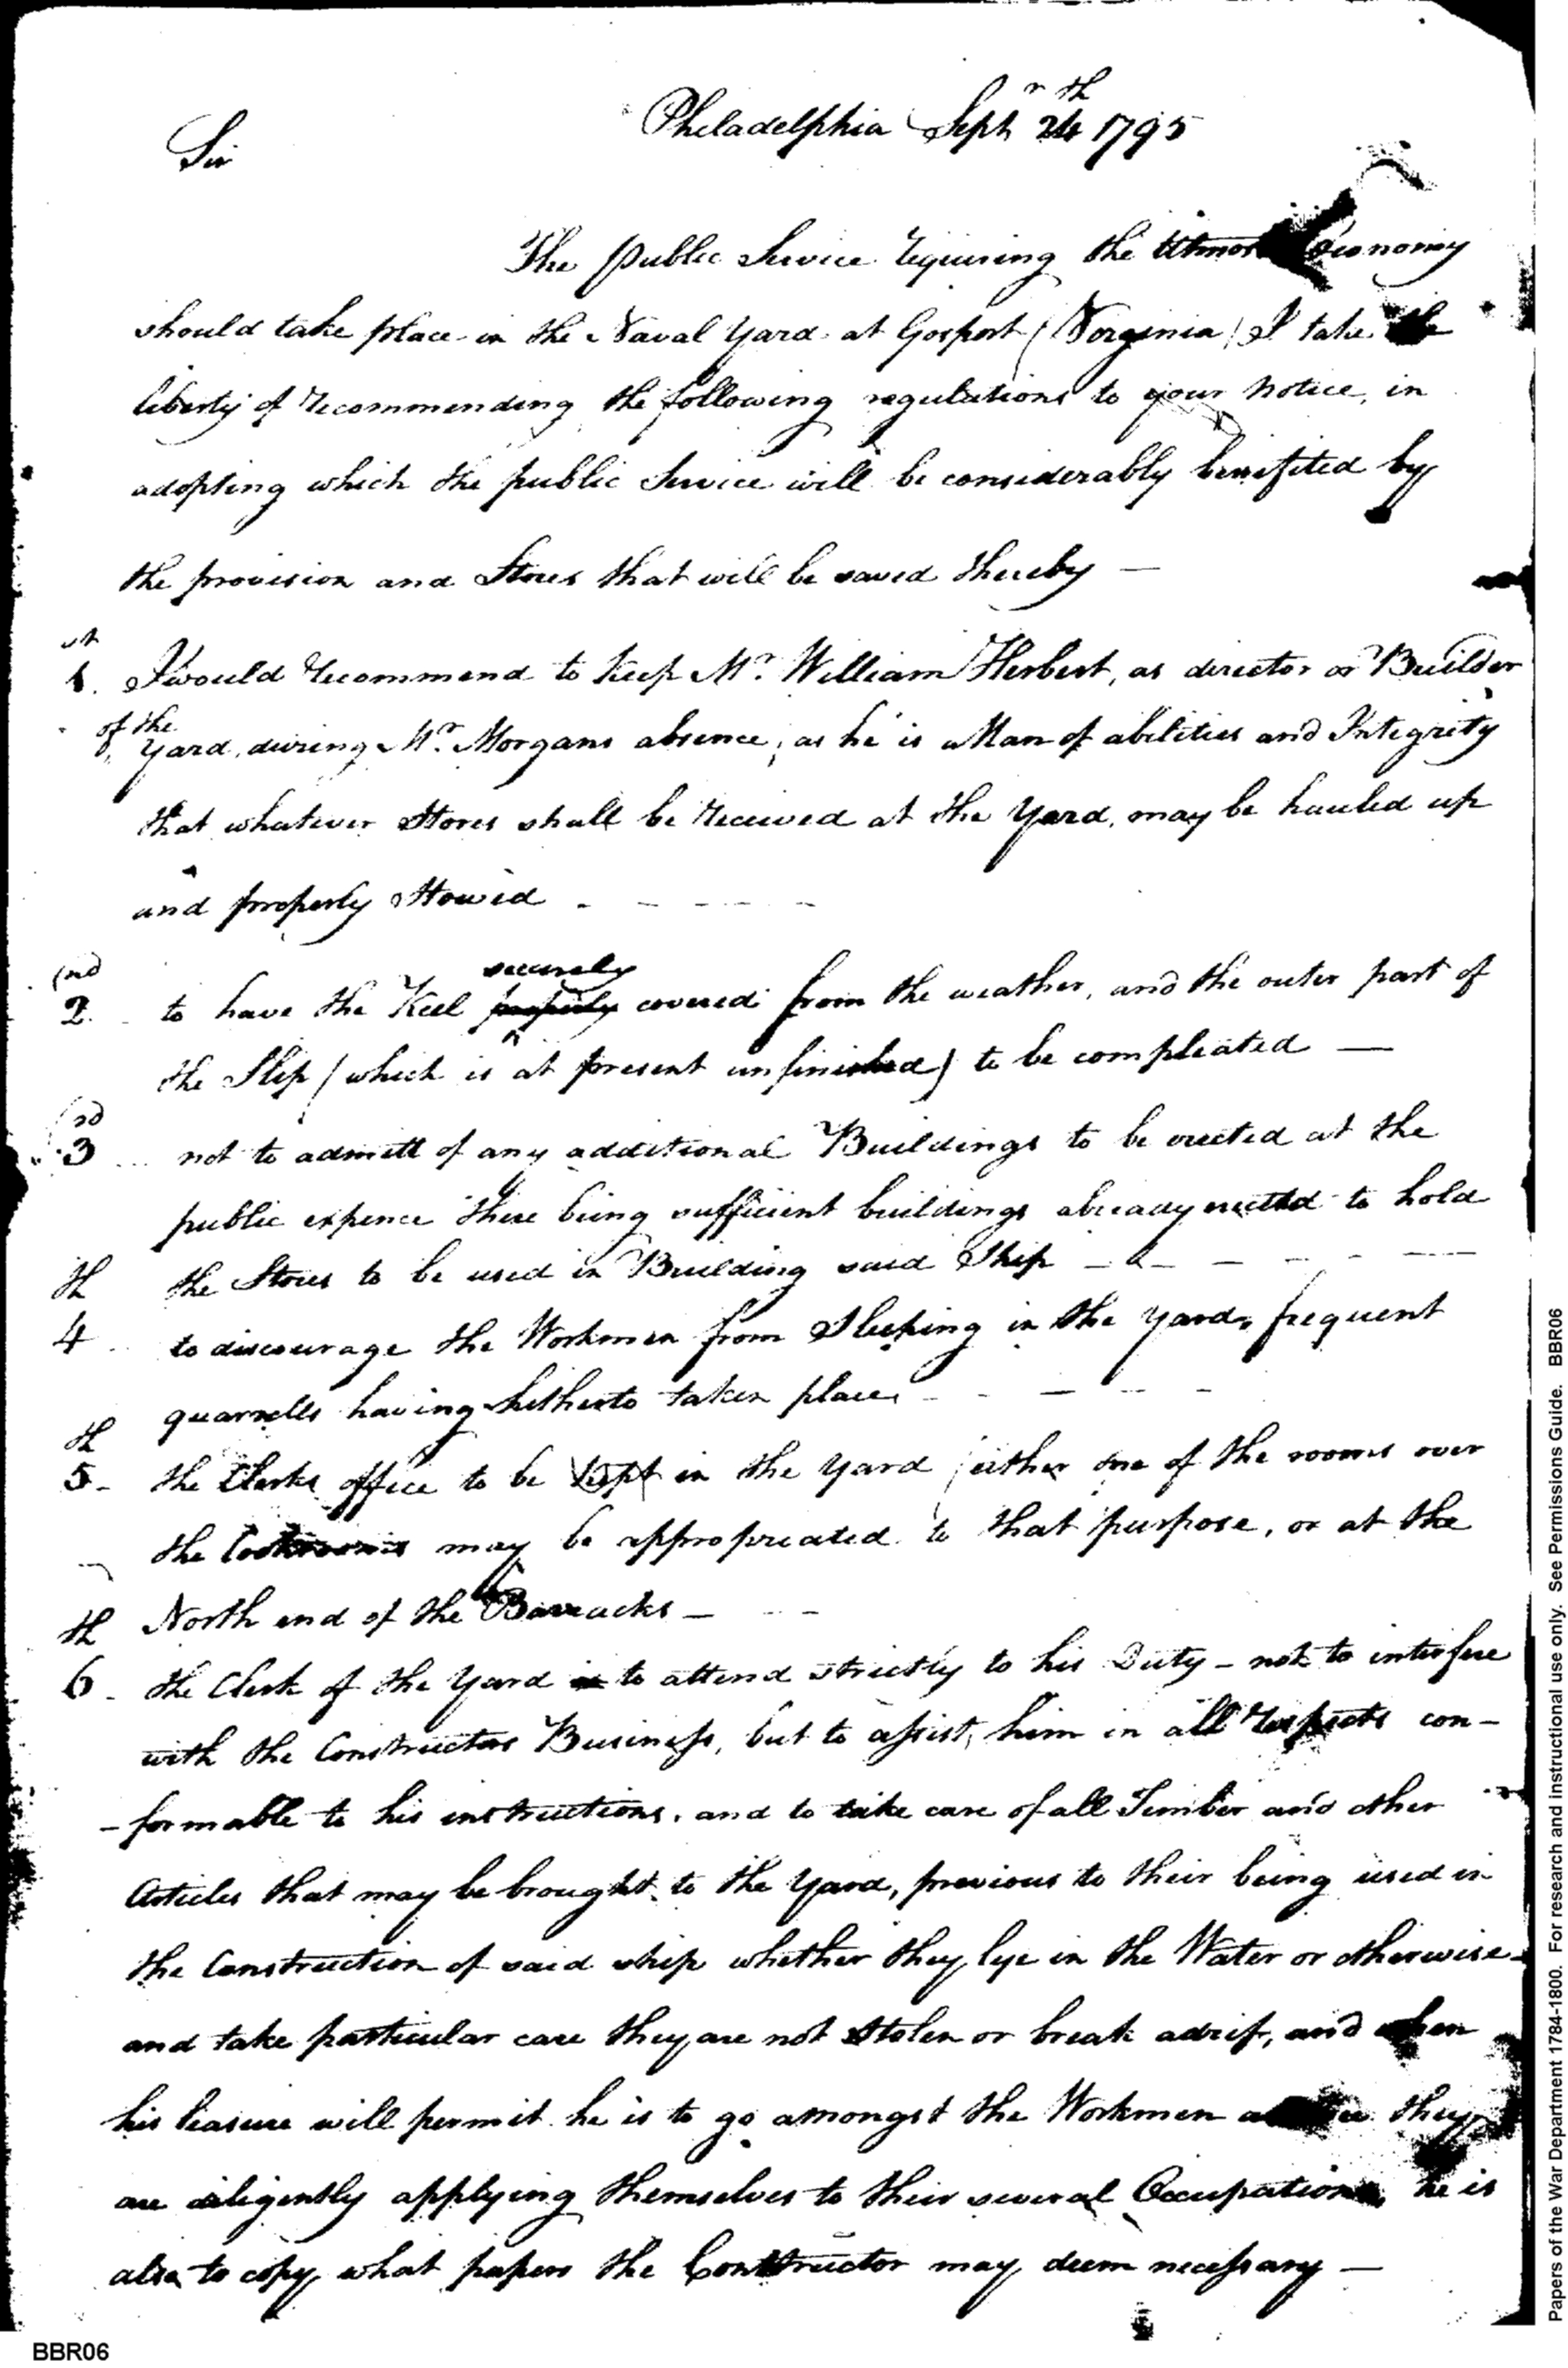 Philadelphia Sepr 24th 1795
Sir
The public Service requiring the Utmost Economy
should take place in the Naval Yard at Gosport (Vorginia) I take the
liberty of recommending the following regulations to your notice, in
adopting which the public Service will be considerably benifited by
the provision and Stores that will be saved thereby —
1st. I would recommend to Keep Mr. William Herbert, as director or Builder
of the
Yard, during Mr. Morgans absence, as he is a Man of abilities and Integrity
that whatever Stores shall be received at the Yard, may be hauled up
and properly Stowed - - - - - -
2nd. to have the Keel properly securely covered from the weather, and the outer part of
the Slip (which is at present unfinished) to be compleated —
3rd not to admitt of any additional Buildings to be erected at the
public expence there being sufficient buildings already erected to hold
the Stores to be used in Building said Ship - - - - - -
4th to discourage the Workmen from Sleeping in the Yard, frequent
quarrells having hitherto taken place - - - - -
5th - the Clerks office to be kept in the Yard, either one of the rooms over
the may be appropriated to that purpose, or at the
North end of the Barracks - - -
6th - the Clerk of the Yard is to attend strictly to his Duty - not to interfere
with the Constructors Business, but to assist him in all respects con-
-formable to his instructions, and to take care of all Timber and other
Articles that may be brought to the Yard, previous to their being used in
the Construction of said ship whether they lye in the Water or otherwise -
and take particular care they are not Stolen or break adrif, and when
his leasure will permit he is to go amongst the Workmen see they
are diligently applying themselves to their several Occupations, he is
also to copy what papers the Constructor may deem necessary —
BBR06
Papers of the War Department 1784-1800. For research and instructional use only. See Permissions Guide. BBR06